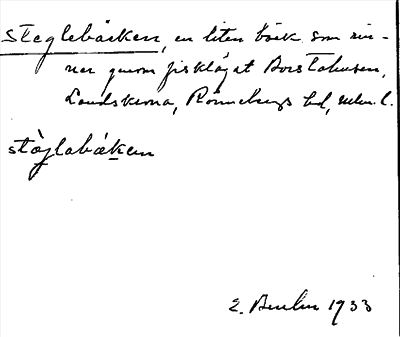 steglebäcken, en liten bäck som rin-
ner genom fiskläget Borstahusen,
Landskrona, Rönnebergs hd, mlm. l.
stæ̀glabæken
E. Benlin 1933